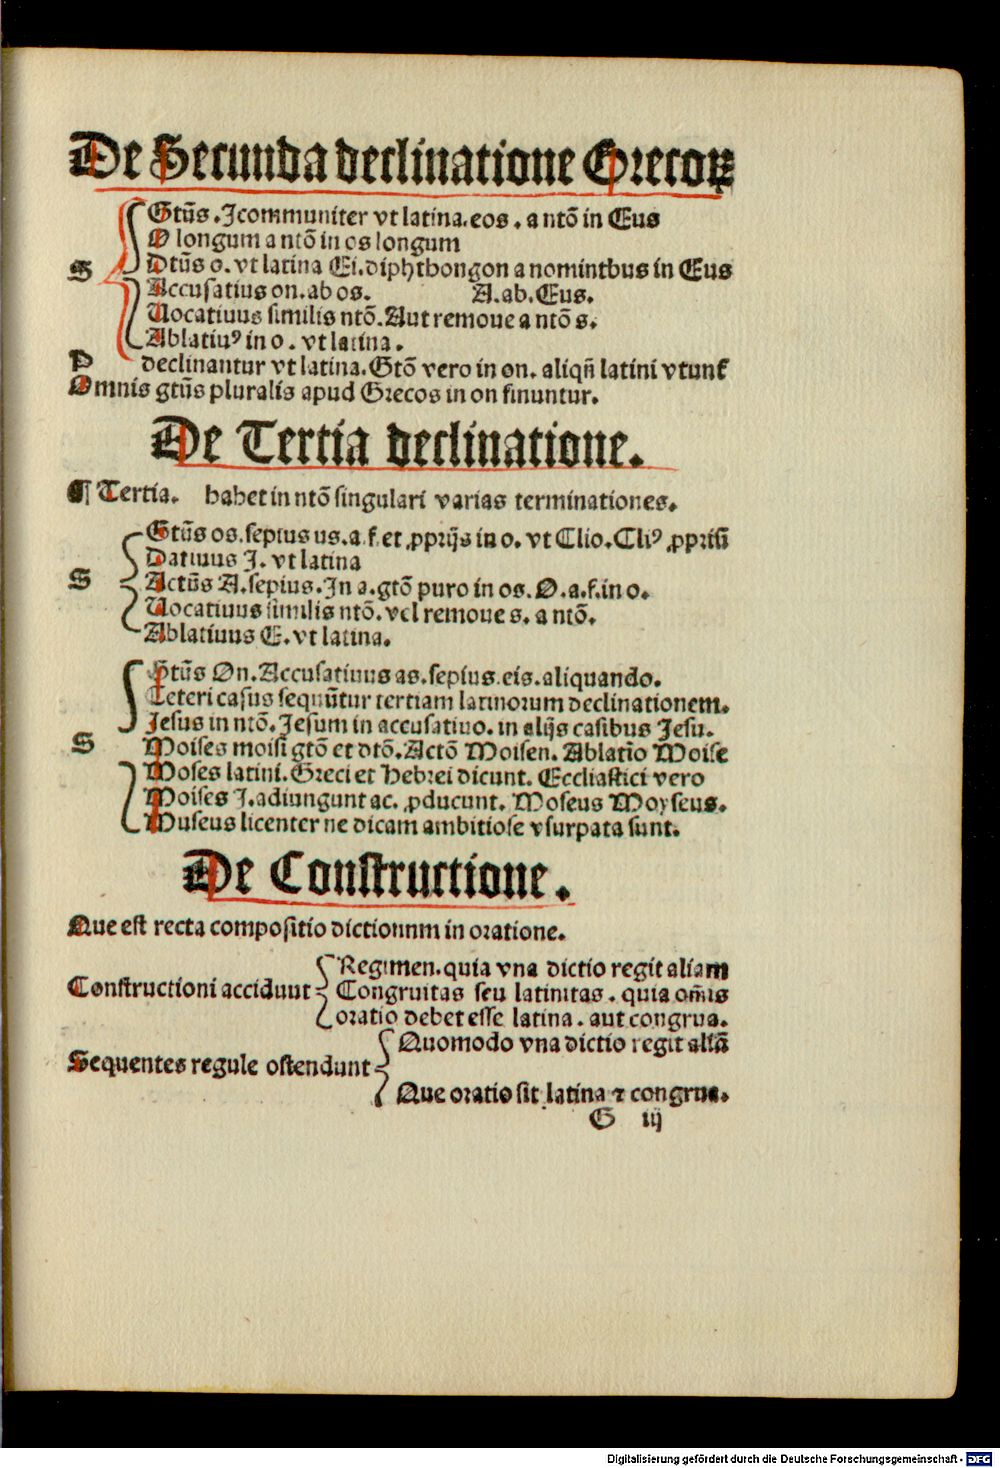 De Secunda declinatione Grecoꝝ
Gtũs . Icommuniter vt latina. eos . a ntõ in Eus
O longum a ntõ in os longum
S Dtũs o. vt latina Ei. diphthongon a nomintbus in Eus
Accusatius on. ab os. A. ab. Eus.
Uocatiuus similis ntõ. Aut remoue a ntõ s.
Ablatiuꝰ in o . vt latina .
P declinantur vt latina. Gtõ vero in on. aliqñ latini vtunt̃
Omnis gtũs pluralis apud Grecos in on finuntur.
De Tertia declinatione.
¶ Tertia. habet in ntõ singulari varias terminationes.
Gtũs os. sepius us. a f. et ꝓprijs in o. vt Clio. Cliꝰ
Datiuus I. vt latina
S Actũs A. sepius. In a. gtõ puro in os. O. a. f. in o.
Uocatiuus similis ntõ. vel remoue s. a ntõ.
Ablatiuus E. vt latina.
Gtũs On. Accusatiuus as. sepius. eis. aliquando.
Ceteri casus sequũtur tertiam latinorum declinationem.
Jesus in ntõ. Jesum in accusatiuo. in alijs casibus Jesu.
S Moises moisi gtõ et dtõ. Actõ Moisen. Ablatio Moise
Moses latini. Greci et hebrei dicunt. Eccliastici vero
Moises I. adiungunt ac. ꝓducunt. Moseus Moyseus.
Museus licenter ne dicam ambitiose vsurpata sunt.
De Constructione.
Que est recta compositio dictionnm in oratione.
Regimen. quia vna dictio regit aliam
Constructioni accidunt Congruitas seu latinitas . quia om̃is
oratio debet esse latina . aut congrua.
Quomodo vna dictio regit aliã
Sequentes regule ostendunt
Que oratio sit latina ⁊ congrua.
G iij
Digitalisierung gefördert durch die Deutsche Forschungsgemeinschaft - DFG